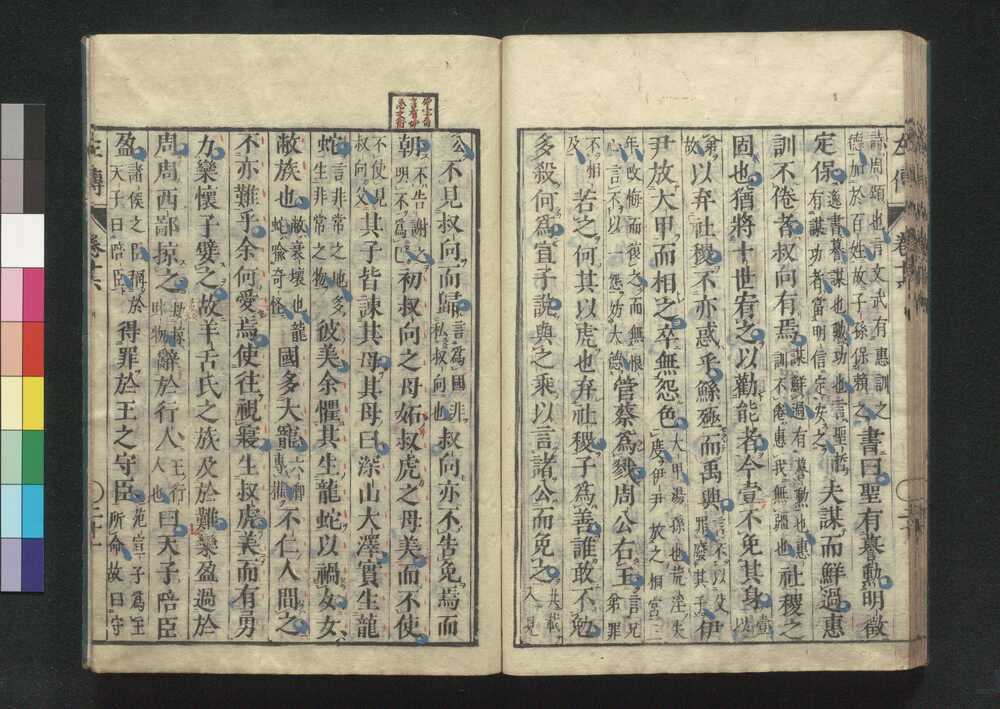 詩周頌也言文武有惠訓之德加於百姓故子孫保賴之書曰聖有謩勲明徵
定保逸書謩謀也勲功也言聖哲有謀功者當明信定安之夫謀而鮮過惠
訓不倦者叔向有焉謀鮮過有謩勲也惠訓不倦惠我無疆也社稷之
固也猶將十世宥之以勸能者今壹不免其身壹以
弟故以弃社稷不亦惑乎鯀殛而禹興言不以父罪廢其子伊
尹放大甲而相之卒無怨色大甲湯孫也荒淫失度伊尹放之桐宮三
年改悔而復之而無恨心言不以一怨妨大德管蔡爲戮周公右王言兄弟罪
不相及若之何其以虎也弃社稷子爲善誰敢不勉
多殺何爲宣子說與之乘以言諸公而免之共載入見
公不見叔向而歸言爲國非私叔向也叔向亦不告免焉而
朝不告謝之明不爲已初叔向之母妬叔虎之母美而不使
不使見叔向父其子皆諫其母其母曰深山大澤實生龍
蛇言非常之地多生非常之物彼美余懼其生龍蛇以禍女女
敝族也敝衰壞也龍蛇喻奇怪國多大寵六卿專權不仁人間之
不亦難乎余何愛焉使往視寢生叔虎美而有勇
力欒懷子嬖之故羊舌氏之族及於難欒盈過於
周周西鄙掠之劫掠財物辭於行人王行人也曰天子陪臣
盈諸侯之臣稱於天子曰陪臣得罪於王之守臣范宣子爲王所命故曰守
左傳 卷十六